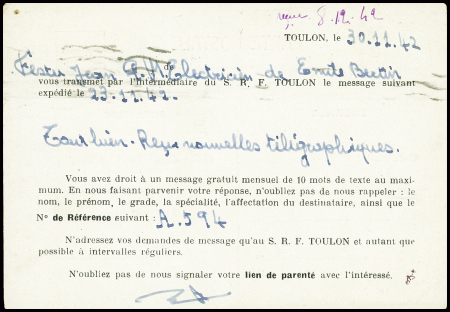 reçu 8.12.42
TOULON, le 30.11.42
de
Jean Q.M. Electricien de Emile Bertin
vous transmet par l'Intermédiaire du S. R. F. TOULON le message suivant
expédié le 23.11.42.
Tout bien. Reçu nouvelles télégraphiques.
Vous avez droit à un message gratuit mensuel de 10 mots de texte au maxi-
mum. En nous faisant parvenir votre réponse, n'oubliez pas de nous rappeler : le
nom, le prénom, le grade, la spécialité, l'affectation du destinataire, ainsi que le
N° de Référence suivant : A.594
N'adressez vos demandes de message qu'au S. R. F. TOULON et autant que
possible à intervalles réguliers.
N'oubliez pas de nous signaler votre lien de parenté avec l'intéressé.